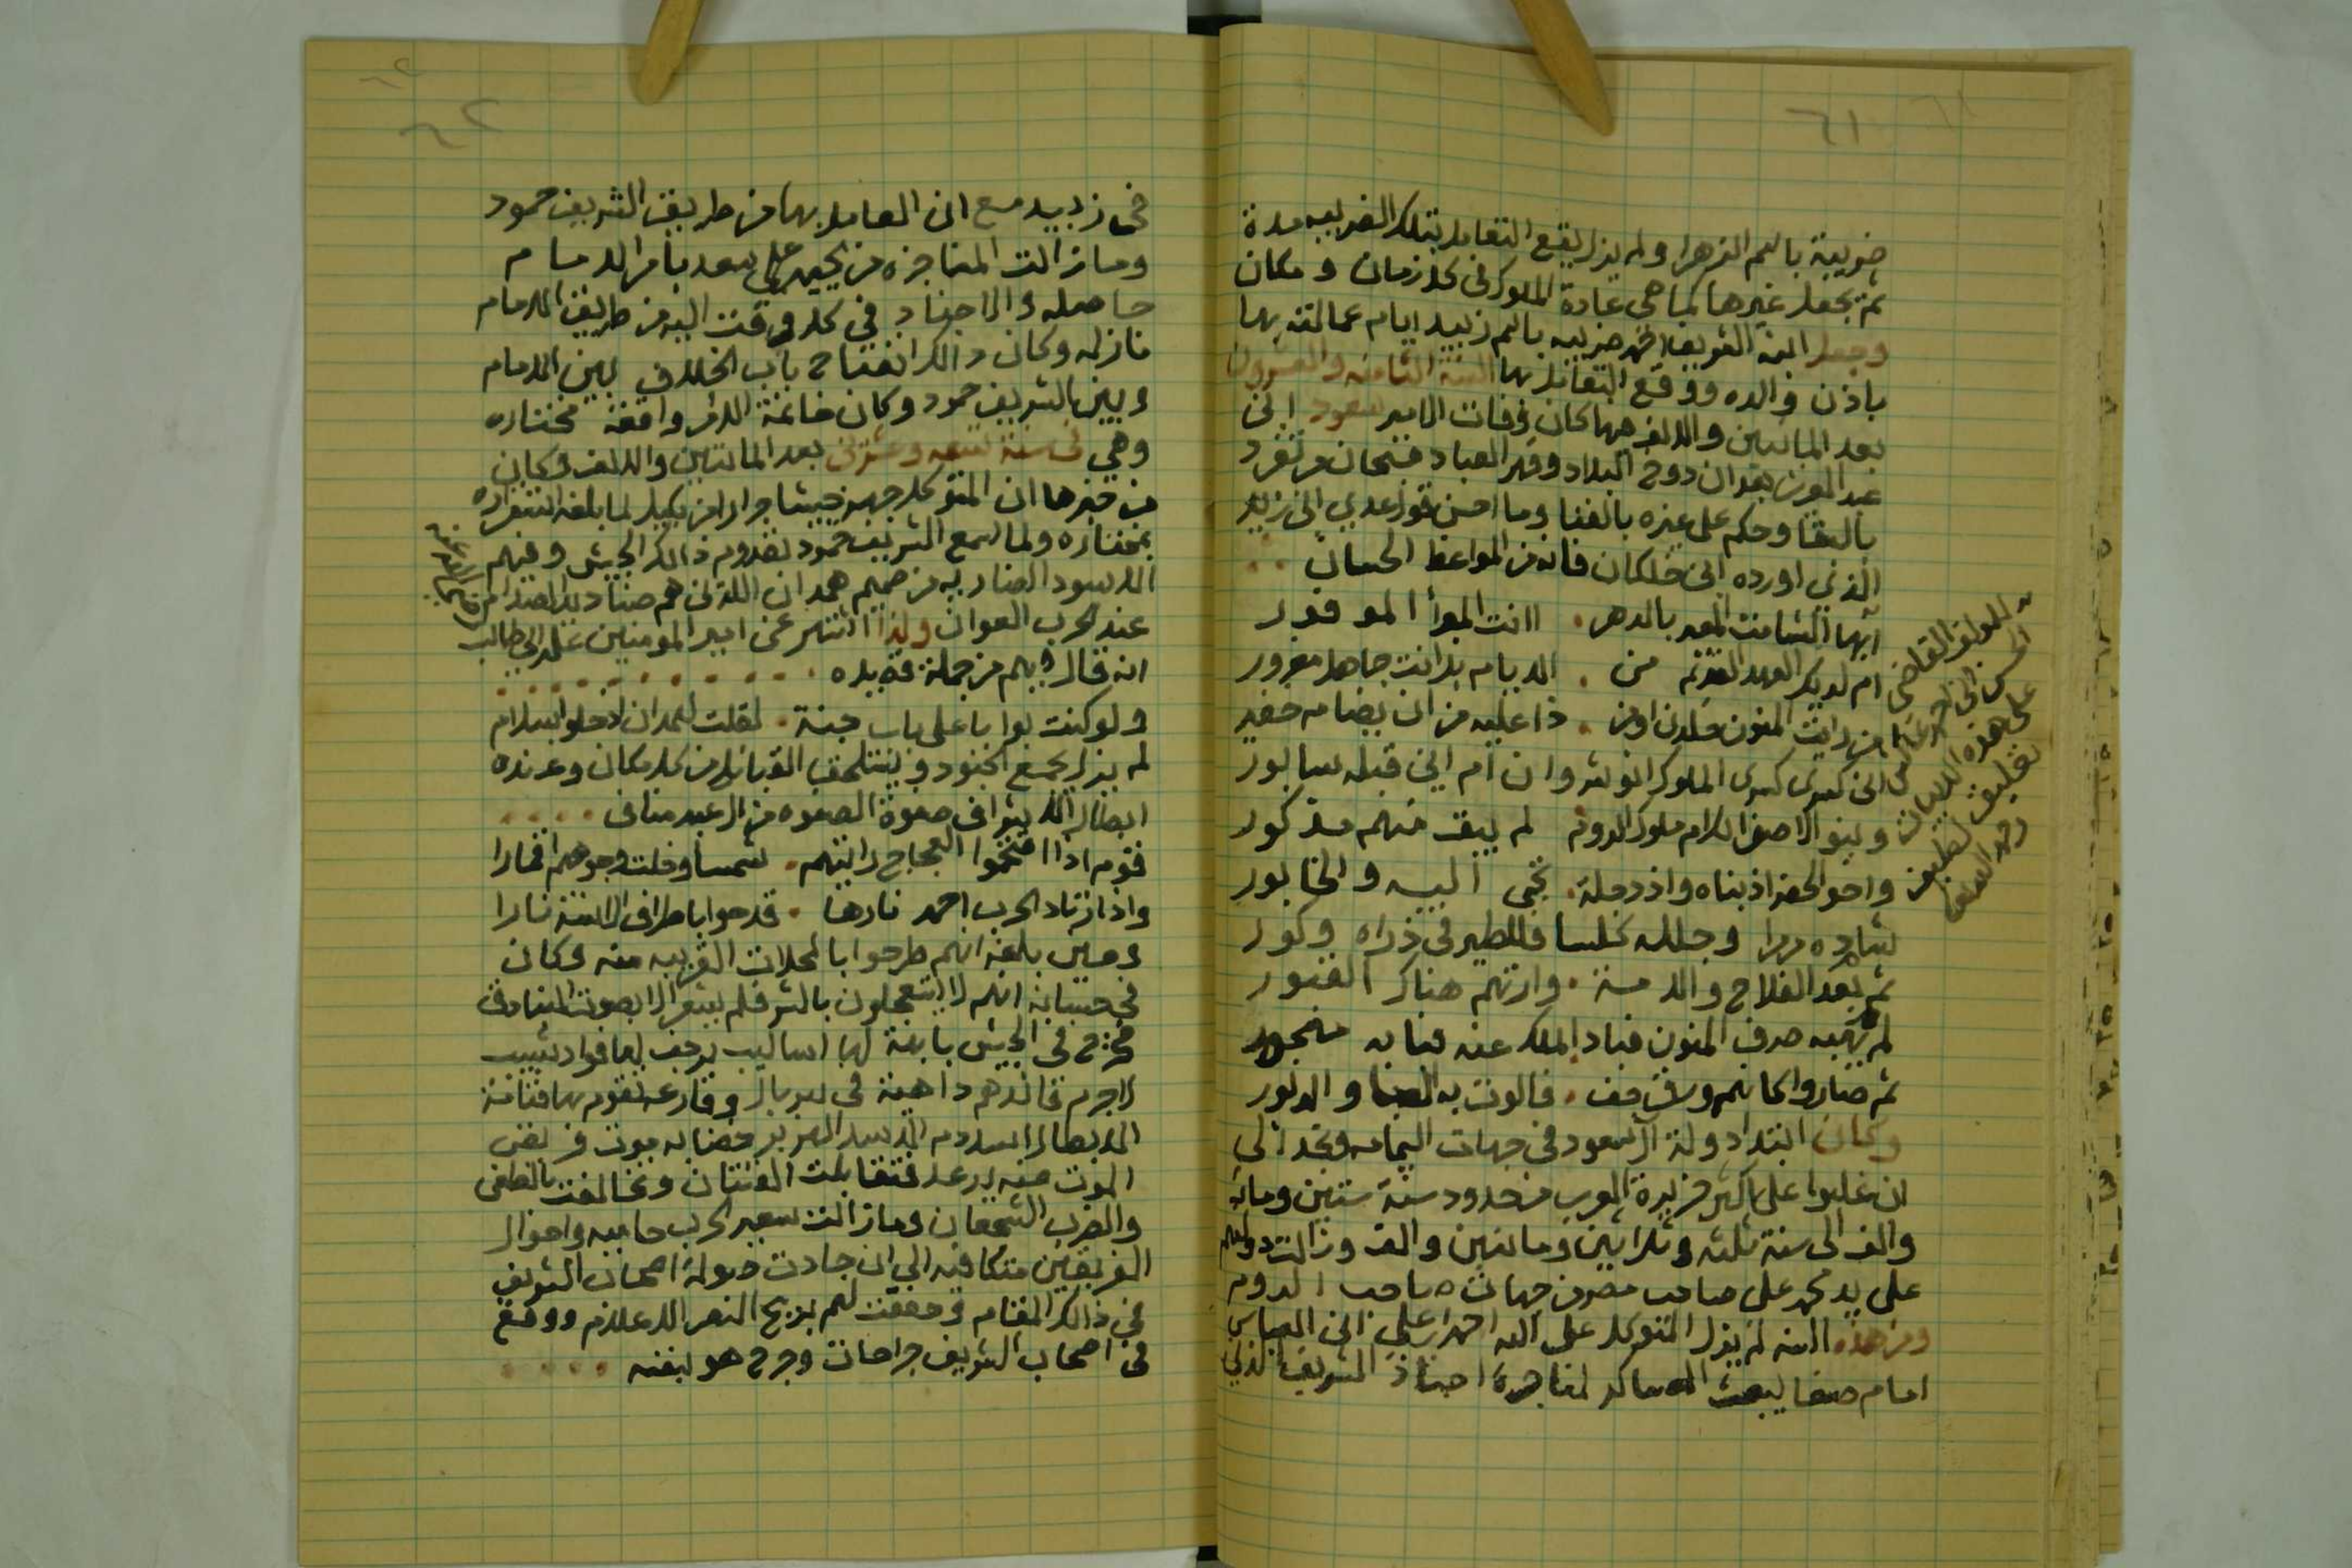 ٦١
ضريبة باسم الزهرا ولم يزل يقع التعامل بتلك الضريبه مدة
ثم يجعل غيرها كما هي عادة الملوك في كل زمان ومكان
وجعل ابنه الشريف احمد ضريبه باسم زبيد ايام عمالته بها
باذن والده ووقع التعامل بها السنة الثامنه والعشرون
بعد المائتين والالف فيها كان وفات الامير سعود ابن
عبد العزيز بعد ان دوخ البلاد وقهر العباد فسبحان من تفرد
بالبقا وحكم على غيره بالفنا وما احسن قول عدي ابن زيد
الذي اورده ابن خلكان فانه من المواعظ الحسان
ايها الشامت المعير بالدهر . اانت المبرأ الموفور
ام لديك العهد القديم من . الايام بل انت جاهل مغرور
من رايت المنون خلدن او من . ذا عليه من ان يضام خفير
اين كسرى كسرى الملوك انوشروان ام اين قبله سابور
وبنو الاصفر الكرام ملوك الروم لم يبق منهم مذكور
واخو الحضر اذ بناه واذ دجلة . تجبى اليه والخابور
شاده مرمرا وجلله كلسا فللطير في ذراه وكور
ثم بعد الفلاح والامة . وارتهم هناك القبور
لم تهبه صرف المنون فباد الملك عنه فبابه مهجور
ثم صاروا كانهم ورق جف . فالوت به الصبا والدبور
وكان ابتدا دولة آل سعود في جهات اليمامه ونجد الى
ان غلبوا على اكثر جزيرة العرب من حدود سنة ستين ومائة
والف الى سنة ثلثه وثلاثين ومائتين والف وزالت دولتهم
على يد محمد علي صاحب مصر من جهات صاحب الروم
ومن هذه السنه لم يزل المتوكل على الله احمد بن علي ابن العباس
امام صنعا يبعث العساكر لمناجزة اجناد الشريف الذين
للمولف القاضي
الحسن ابن احمد
على هذه الابيات
تعليق لطيف
٦٢
في زبيد مع ان العامل بها من طريق الشريف حمود
وما زالت المناجزه من يحيى علي سعد بامر الامام
حاصله والاجناد في كل وقت اليه من طريق الامام
نازله وكان ذالك انفتاح باب الخلاف بين الامام
وبين الشريف حمود وكان خاتمة الامر واقعة مختاره
وهي في سنة تسعه وعشرين بعد المائتين والالف وكان
من خبرها ان المتوكل جهز جيشا جرارا من بكيل لما بلغه استقراره
بمختاره ولما سمع الشريف حمود بقدوم ذالك الجيش وفيهم
الاسود الضاريه من صميم همدان اللذين هم صناديد الصدام
عند الحرب العوان ولذا اشتهر عن امير المومنين علي ابن ابي طالب
انه قال فيهم من جملة قصيده
ولو كنت بوابا على باب جنة . لقلت لهمدان ادخلوا بسلام
لم يزل يجمع الجنود ويستلحق القبائل من كل مكان وعنده
ابطال الاشراف صفوة الصفوه من آل عبد مناف
قوم اذا اقتحموا العجاج رايتهم . شمسا وخلت وجوههم اقمارا
واذا زناد الحرب اخمد نارها . قدحوا باطراف الاسنة نارا
وحين بلغه انهم طرحوا بالمحلات القريبه منه وكان
في حسبانه انهم لا يستعجلون بالشر فلم يشعر الا بصوت البنادق
فخرج في الجيش
لاجرم فالدهم داهية في سربال وقارعه تقوم بها قتامة
الموت منه يرعد فتقابلت الفئتان وتخالفت بالطعن
والضرب الشجعان وما زالت سعير الحرب حاميه واحوال
الفريقين متكافيه الى ان جادت صولة اصحاب الشريف
في ذالك المقام وخفقت لهم بريح النصر الاعلام ووقع
في اصحاب الشريف جراحات وجرح هو بنفسه